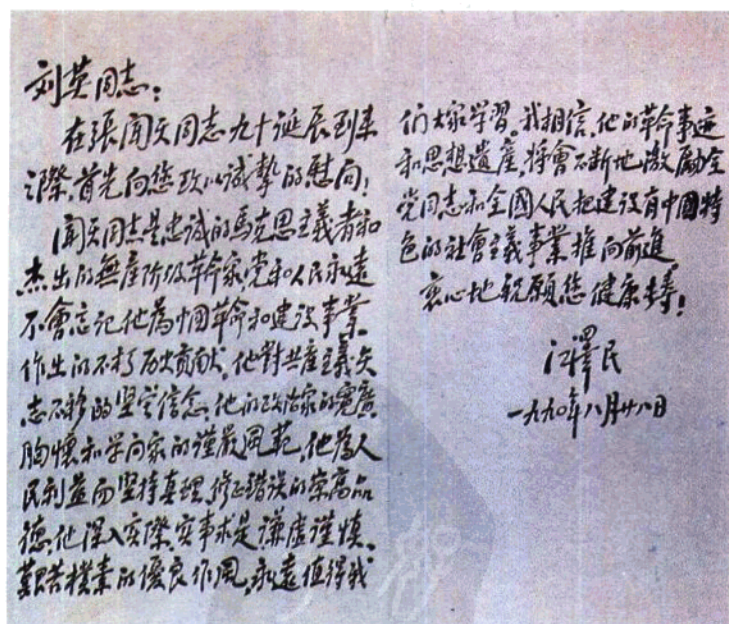 刘英同志：
在張闻天同志九十诞辰到来
之際,首先向您致以诚摯的慰问!
闻天同志是忠诚的馬克思主義者和
杰出的無產阶级革命家,党和人民永遠
不會忘记他為中國革命和建设事業
作出的不朽历史贡献。他對共產主義矢
志不移的坚定信念,他的政治家的寬廣
胸懷和学问家的謹嚴風範,他為人
民利益而坚持真理、修正錯误的崇高品
德,他深入实際、实事求是、谦虚谨慎、
艱苦樸素的優良作風,永遠值得我
们大家学習。我相信,他的革命事迹
和思想遗產,将會不断地激勵全
党同志和全國人民把建设有中國特
色的社會主義事業推向前進。
衷心地祝願您健康長壽!
江澤民
一九九〇年八月廿八日